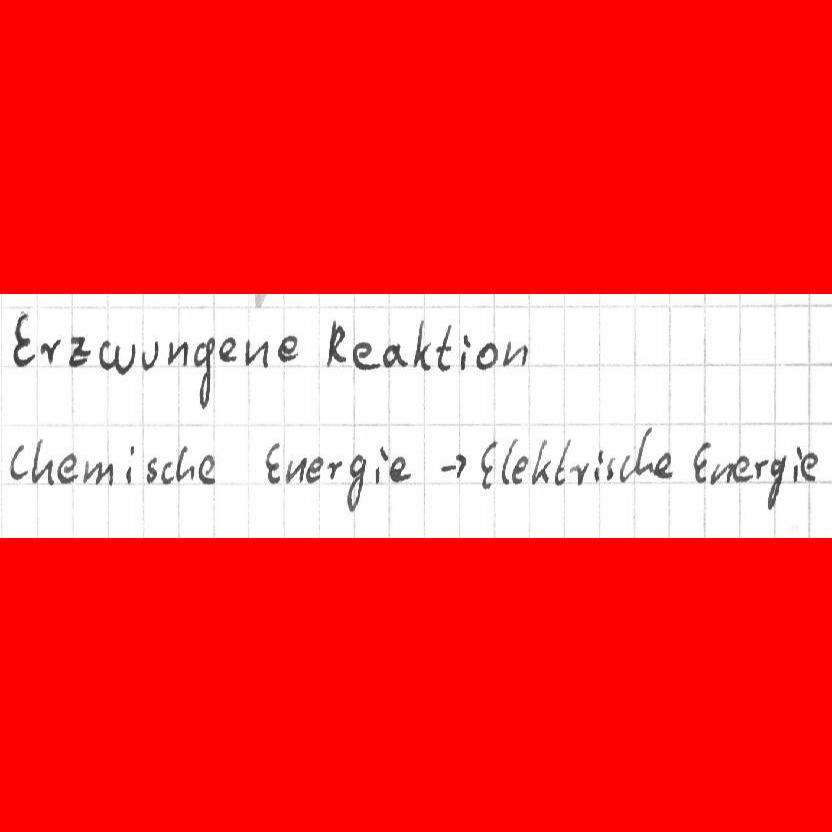 Erzwungene Reaktion
Chemische Energie → Elektrische Energie